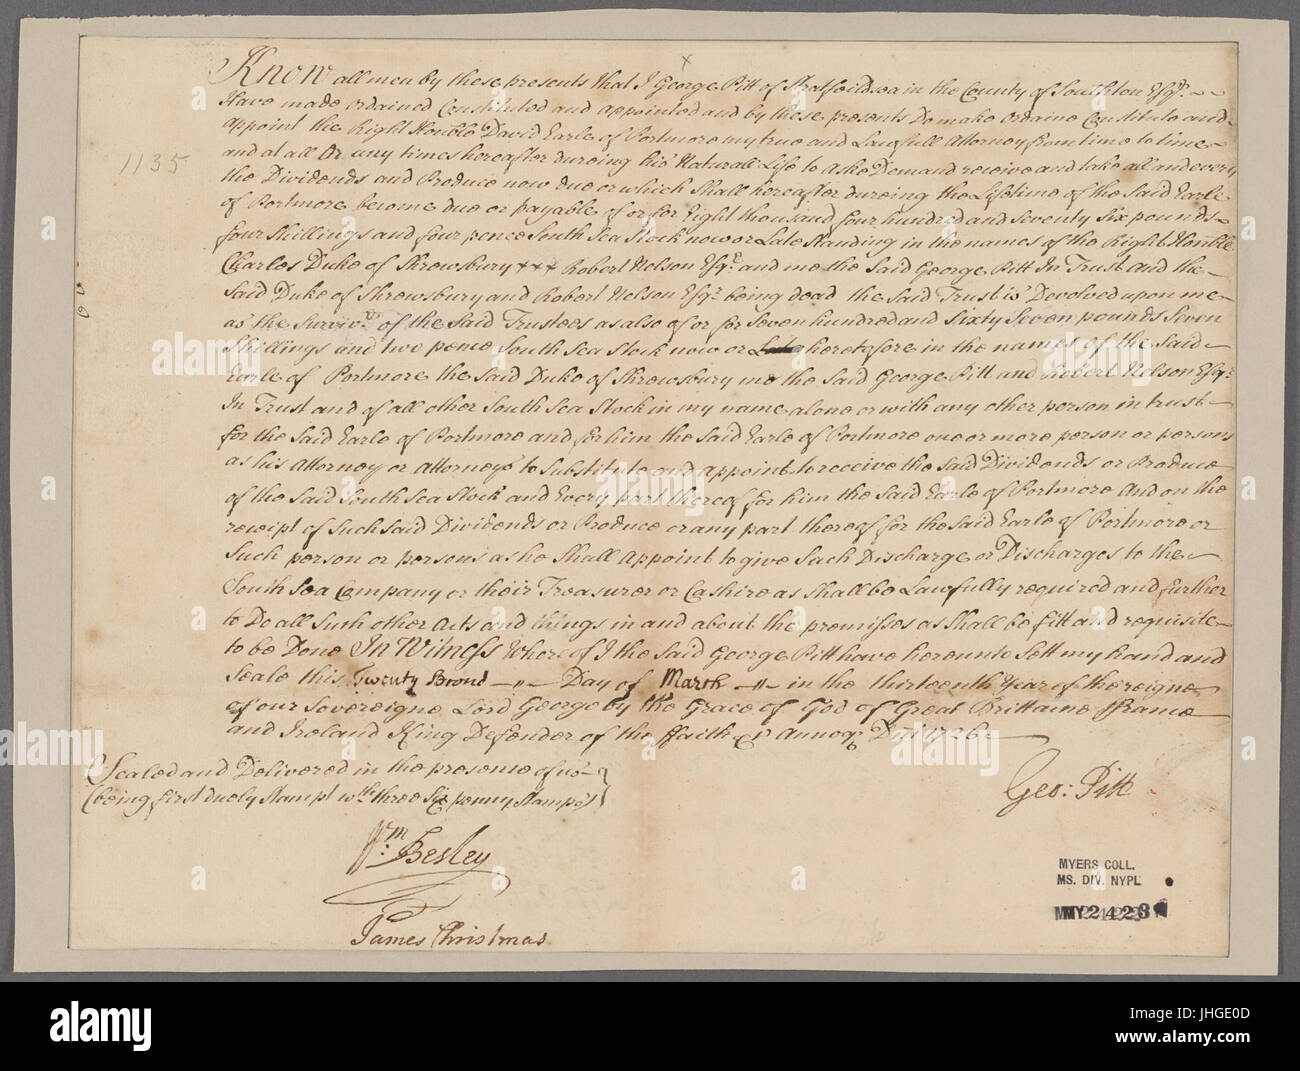 x
Know all men by these presents that I George Pitt of Stratfeildsea in the County of Southton Esqr.
Have made ordained Constituted and appointed and by these presents Do make ordaine Constitute and
appoint the Right Honble David Earle of Portmore my true and Lawfull Attorney from time to time
1135
and at all Or any times hereafter dureing his Naturall Life to Aske Demand receive and take all and every
the Dividends and Produce now due or which Shall hereafter dureing the Lifetime of the Said Earle
of Portmore become due or payable of or for Eight thousand four hundred and Seventy Six pounds
four Shillings and four pence South Sea Stock now or Late Standing in the names of the Right Honble
Charles Duke of Shrewsbury x x x Robert Nelson Esqr. and me the Said George Pitt In Trust and the
Said Duke of Shrewsbury and Robert Nelson Esqr. being dead the Said Trust is Devolved upon me
as the Survivr. of the Said Trustees as also of or for Seven hundred and Sixty Seven pounds Seven
Shillings and two pence South Sea Stock now or heretofore in the names of the Said
Earle of Portmore the Said Duke of Shrewsbury me the Said George Pitt and Robert Nelson Esqr.
In Trust and of all other South Sea Stock in my name alone or with any other person in trust
for the Said Earle of Portmore and for him the Said Earle of Portmore one or more person or persons
as his Attorney or Attorneys to Substitute and appoint to receive the Said Dividends or Produce
of the Said South Sea Stock and Every part thereof for him the Said Earle of Portmore And on the
receipt of Such Said Dividends or Produce or any part thereof for the Said Earle of Portmore or
Such person or persons as he Shall Appoint to give Such Discharge or Discharges to the
South Sea Company or their Treasurer or Cashire as Shall be Lawfully required and further
to Do all Such other Acts and things in and about the premisses as Shall be fitt and requisite
to be Done In Witness Whereof I the Said George Pitt have hereunto Sett my hand and
Seale this Twenty Second Day of March in the thirteenth Year of the reigne
of our Sovereigne Lord George by the Grace of God of Great Brittaine ffrance
and Ireland King Defender of the ffaith &c Annoq. Dni 1726
Sealed and Delivered in the presence of us
(being first duely Stampt wth. three Six penny Stamps)
Geo: Pitt
Wm. Besley
James Christmas
MYERS COLL.
MS. DIV. NYPL
alamy
alamy stock photo
JHGE0D
www.alamy.com